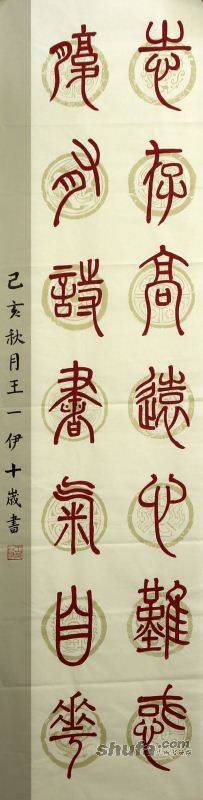 志存高遠心難惑
腹有詩書氣自華
己亥秋月王一伊十歲書